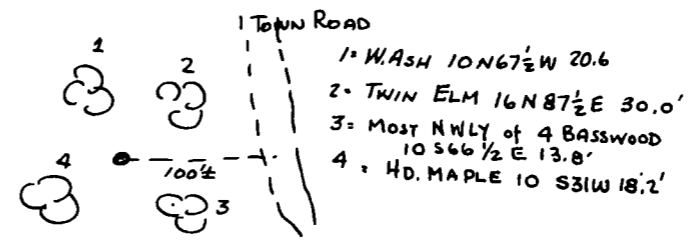 TOWN ROAD
1
2
1= W.ASH 10 N67½W 20.6
2- TWIN ELM 16 N87½E 30.0'
3= MOST NWLY of 4 BASSWOOD
10 S66 1/2 E 13.8'
4 = HD. MAPLE 10 S31W 18.2'
4
100'±
3